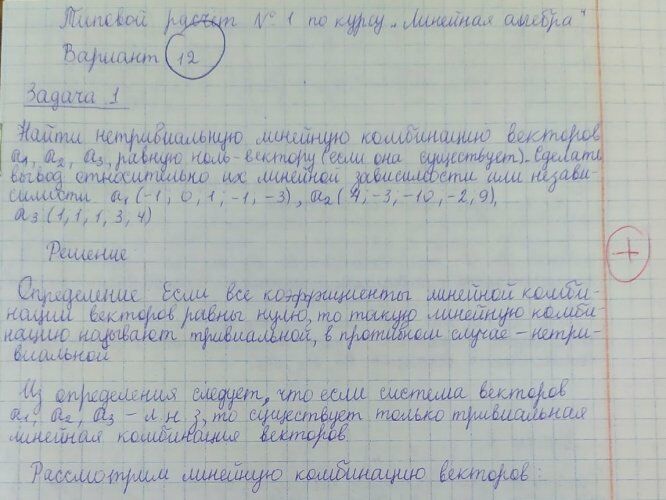 Типовой расчет № 1 по курсу „Линейная алгебра"
Вариант 12
Задача 1
Найти нетривиальную линейную комбинацию векторов
a1, a2, a3, равную ноль-вектору (если она существует). Сделать
вывод относительно их линейной зависимости или незави-
симости a1 (-1; 0, 1; -1, -3), a2 (4; -3, -10, -2, 9),
a3 (1, 1, 1, 3, 4)
Решение
Определение Если все коэффициенты линейной комби-
нации векторов равны нулю, то такую линейную комби-
нацию называют тривиальной, в противном случае - нетри-
виальной
Из определения следует, что если система векторов
a1, a2, a3 - л н з, то существует только тривиальная
линейная комбинация векторов
Рассмотрим линейную комбинацию векторов:
+